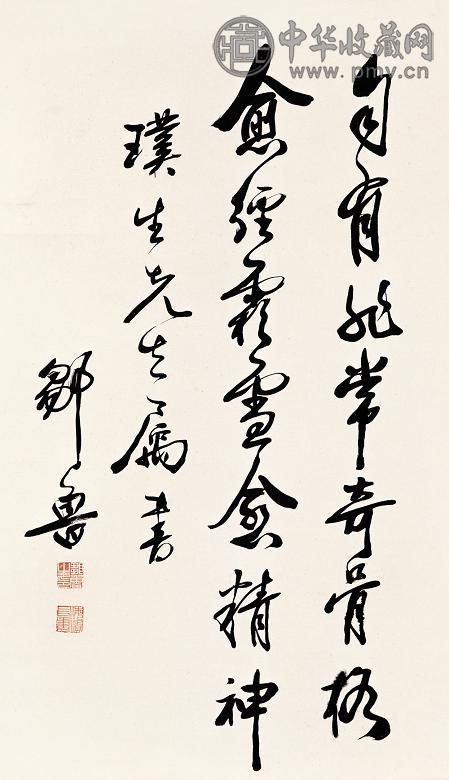 中华收藏网
www.pmv.cn
自有非常奇骨格
愈經霜雪愈精神
璞生先生属書
鄒魯